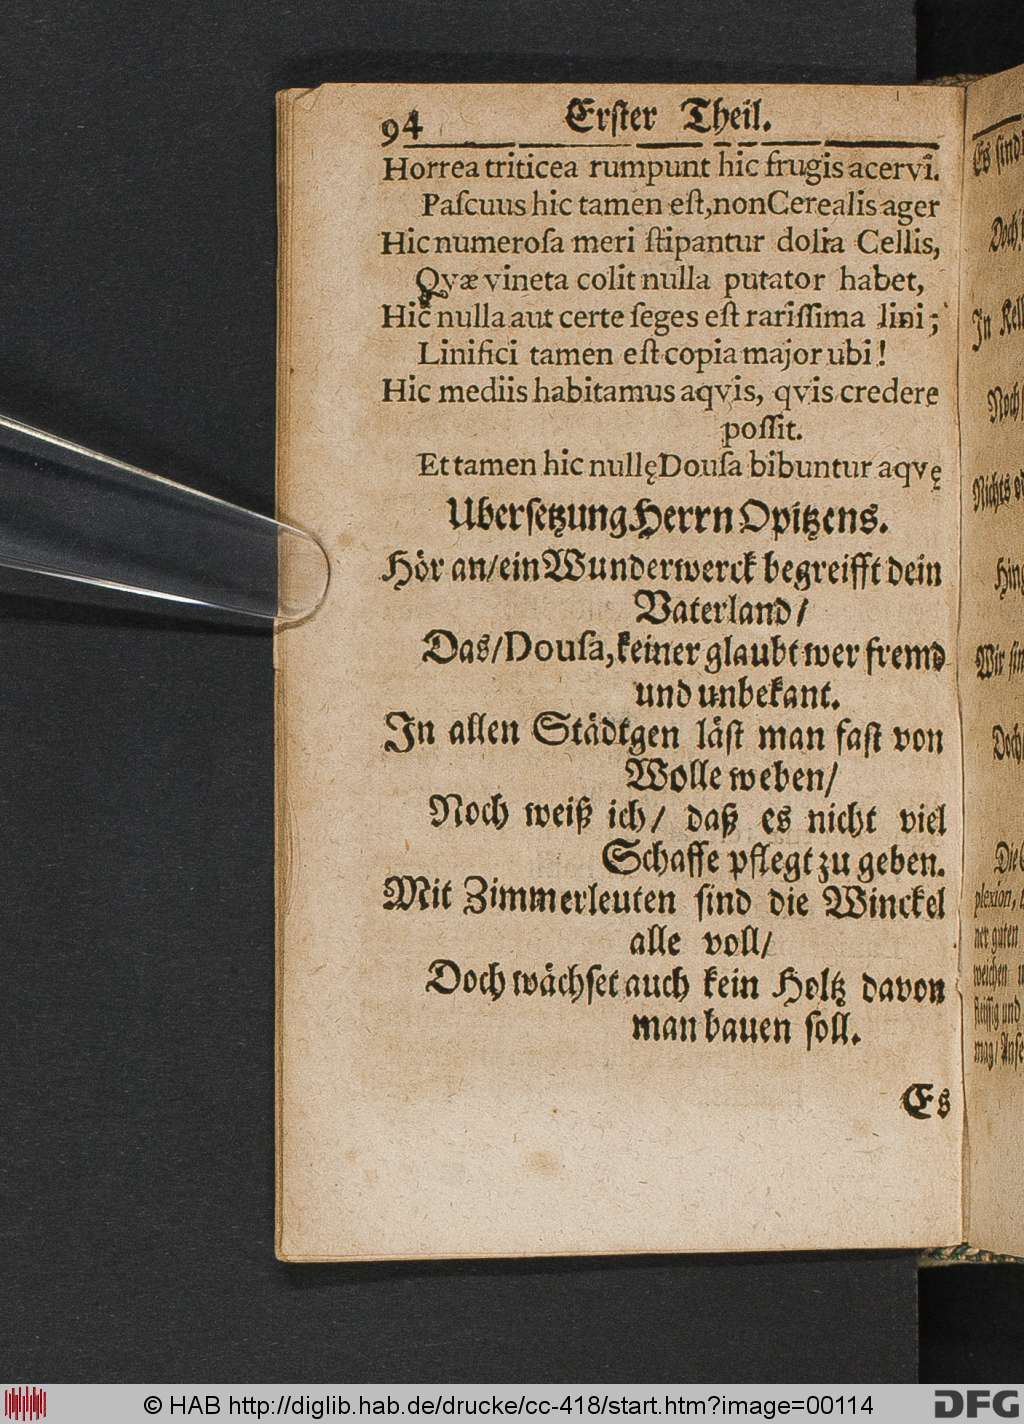 94 Erſter Theil.
Horrea triticea rumpunt hic frugis acervi.
Paſcuus hic tamen eſt, non Cerealis ager
Hic numeroſa meri ſtipantur dolia Cellis,
Qvæ vineta colit nulla putator habet,
Hic nulla aut certe ſeges eſt rariſſima lini;
Linifici tamen eſt copia major ubi!
Hic mediis habitamus aqvis, qvis credere
poſſit.
Et tamen hic nullę Douſa bibuntur aqvę
Uberſetzung Herrn Opitzens.
Hör an/ ein Wunderwerck begreifft dein
Vaterland/
Das/ Douſa, keiner glaubt wer fremd
und unbekant.
In allen Städtgen läſt man faſt von
Wolle weben/
Noch weiß ich/ daß es nicht viel
Schaffe pflegt zu geben.
Mit Zimmerleuten ſind die Winckel
alle voll/
Doch wächſet auch kein Holtz davon
man bauen ſoll.
Es
Es ſind
Doch
In Kell
Noch
Nichts
Hing
Wir ſin
Doch
Die
plexion,
ner guten
weichen
fleiſſig und
mag/ Anſe
© HAB http://diglib.hab.de/drucke/cc-418/start.htm?image=00114
DFG